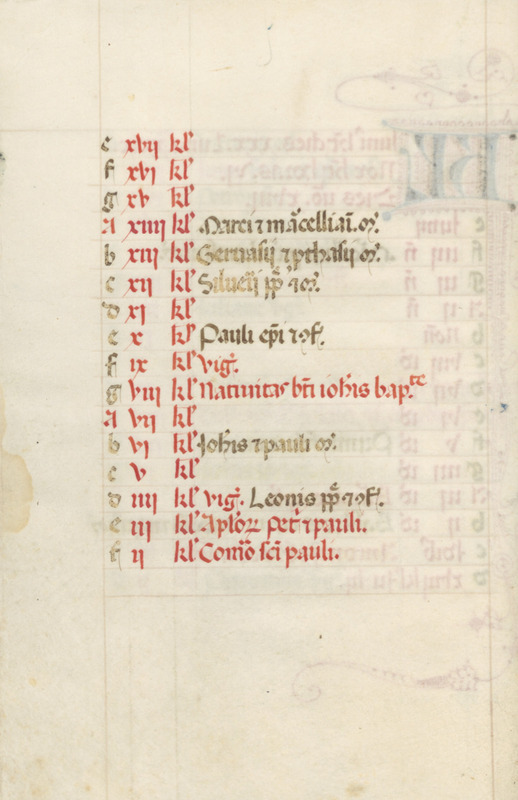 e xvii kl
f xvi kl
g xv kl
A xiiii kl Marci ⁊ mͣcelliaī. mͬ.
b xiii kl Geruasij ⁊ ꝓthasij mͬ.
c xii kl Siluerij pp̄ ⁊ mͬ.
d xi kl
e x kl Pauli ep̄i ⁊ ꝯf.
f ix kl vig̾.
g viii kl Natiuitas bt̄i ioh̄is bap.te
A vii kl
b vi kl Ioh̄is ⁊ pauli mͬ.
c v kl
d iiii kl vig̾. Leonis pp̄ ⁊ ꝯf.
e iii kl Apl̄oꝝ pet̾ ⁊ pauli.
f ii kl Com̄o sc̄i pauli.